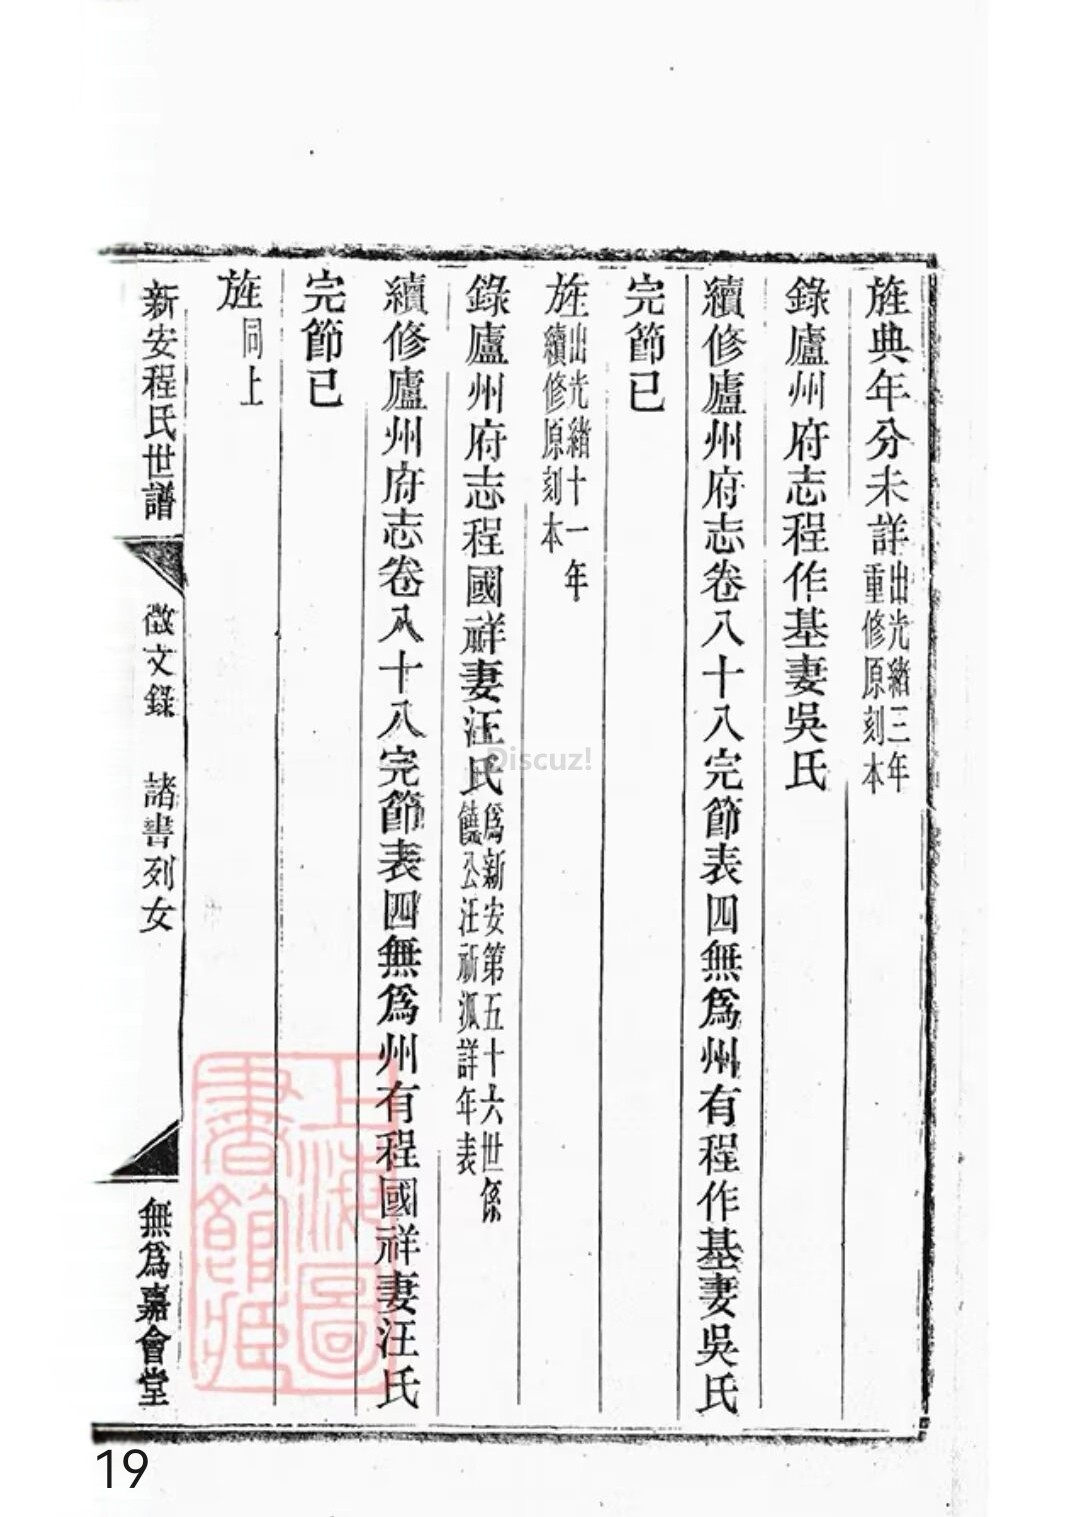 旌典年分未詳出光緒三年
重修原刻本
錄廬州府志程作基妻吳氏
續修廬州府志卷八十八完節表四無爲州有程作基妻吳氏
完節已
旌出光緒十一年
續修原刻本
錄廬州府志程國祥妻汪氏爲新安第五十六世係
饒公汪祈派詳年表
續修廬州府志卷八十八完節表四無爲州有程國祥妻汪氏
完節已
旌同上
新安程氏世譜 徵文錄 諸書列女 無爲嘉會堂
上海圖書館藏
Discuz!
19